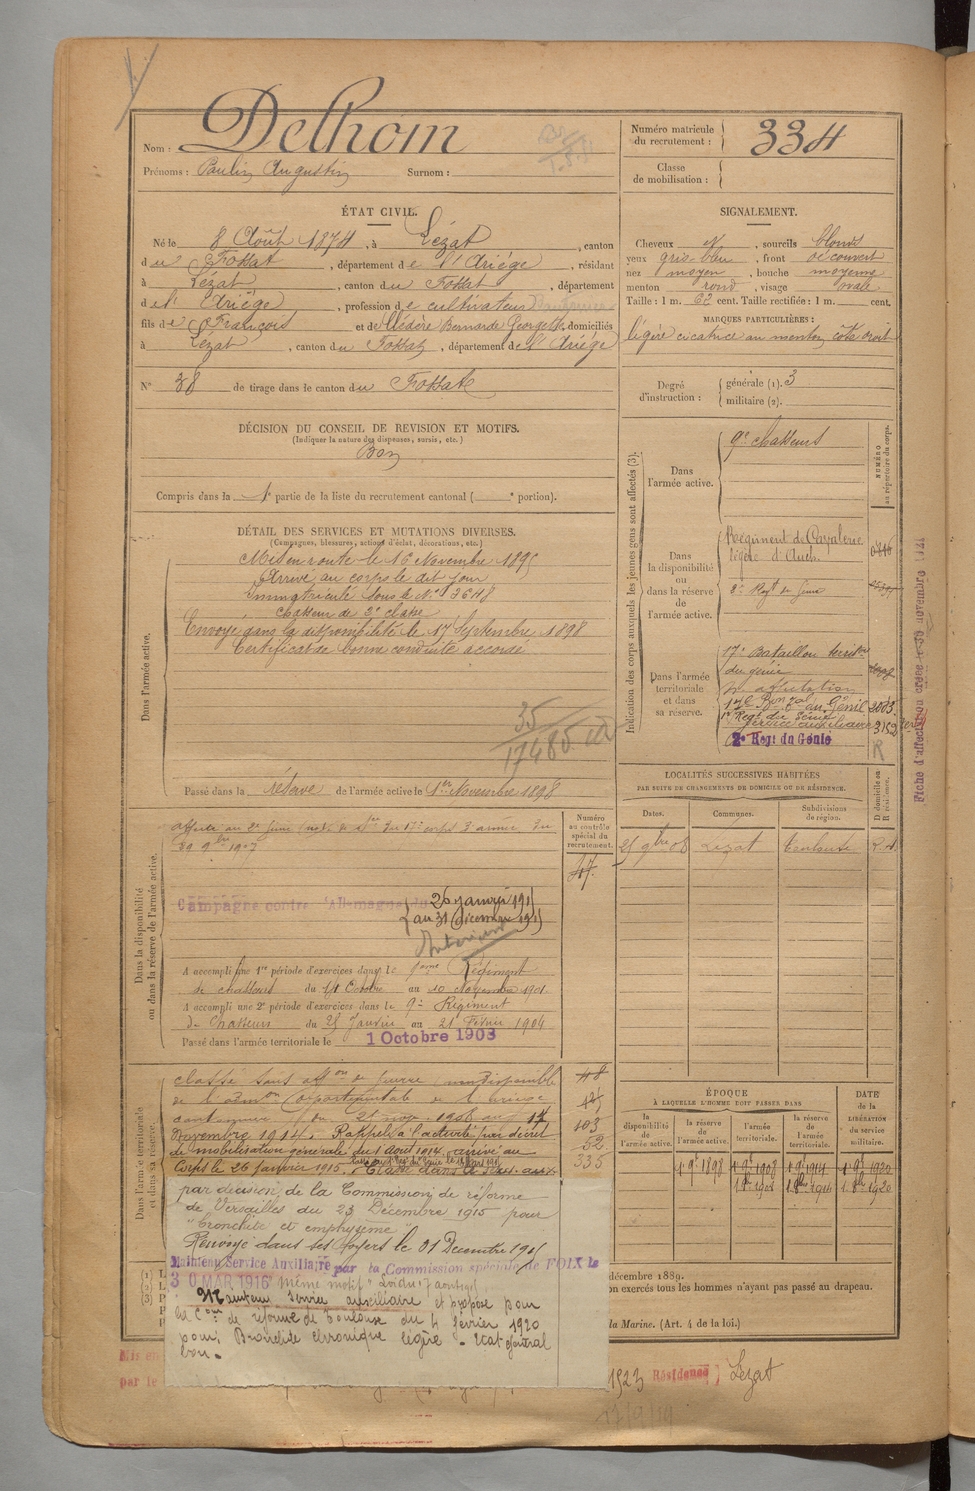 Nom : Delhom
Prénoms : Paulin Augustin Surnom :
Numéro matricule du recrutement : 334
Classe de mobilisation :
ÉTAT CIVIL.
Né le 8 Août 1874, à Lézat, canton
du Fossat, département de l'Ariége, résidant
à Lézat, canton du Fossat, département
de l' Ariége, profession de cultivateur
fils de François et de Bernarde Georgette, domiciliés
à Lézat, canton du Fossat, département de l'Ariége
N° 38 de tirage dans le canton du Fossat
SIGNALEMENT.
Cheveux et, sourcils blonds
yeux gris bleu, front découvert
nez moyen, bouche moyenne
menton rond, visage ovale
Taille : 1 m. 62 cent. Taille rectifiée : 1 m. cent.
MARQUES PARTICULIÈRES :
légère cicatrice au menton côté droit
Degré d'instruction : générale (1). 3
militaire (2).
DÉCISION DU CONSEIL DE REVISION ET MOTIFS.
(Indiquer la nature des dispenses, sursis, etc.)
Bon
Compris dans la 1e partie de la liste du recrutement cantonal ( e portion).
DÉTAIL DES SERVICES ET MUTATIONS DIVERSES.
(Campagnes, blessures, actions d'éclat, décorations, etc.)
Dans l'armée active.
Mis en route le 16 Novembre 1895
Arrivé au corps le dit jour
Immatriculé sous le N° 3648
chasseur de 2e classe
Envoyé dans la disponibilité le 17 Septembre 1898
Certificat de bonne conduite accordé
35
17485
Passé dans la réserve de l'armée active le 1er Novembre 1898
Indication des corps auxquels les jeunes gens sont affectés (3).
NUMÉRO au répertoire du corps.
Dans l'armée active.
9e chasseurs
Dans la disponibilité ou dans la réserve de l'armée active.
Régiment de Cavalerie
légère d'Auch
2e Regt du Génie
Dans l'armée territoriale et dans sa réserve.
17e Bataillon territ
du génie
affectation
du Génie 2003
1er Regt du Génie
service auxiliaire 3152
2e Regt du Génie R
Fiche d'affectation créée le 30 novembre 1921
LOCALITÉS SUCCESSIVES HABITÉES
PAR SUITE DE CHANGEMENTS DE DOMICILE OU DE RÉSIDENCE.
Dates. Communes. Subdivisions de région. D domicile ou R résidence.
25 9bre 08 Lezat Toulouse R.
Dans la disponibilité ou dans la réserve de l'armée active.
Numéro au contrôle spécial du recrutement.
47.
Campagne contre l'Allemagne du 26 janvier 1915
au 31 décembre 1915
Intérieur
A accompli une 1re période d'exercices dans le Régiment
de chasseurs du 14 Octobre au 10 Novembre 1901
A accompli une 2e période d'exercices dans le 9e Régiment
de Chasseurs du 25 Janvier au 21 Février 1904
Passé dans l'armée territoriale le 1 Octobre 1908
Dans l'armée territoriale et dans sa réserve.
classé sans affon de guerre
du 21 nov. 1908 au 17
Novembre 1914. Rappelé à l'activité par décret
de mobilisation générale du 1 Août 1914, arrivé au
Corps le 26 janvier 1915. Classé dans le serv. aux.
48
103
52
335
par décision de la Commission de réforme
de Versailles du 23 Décembre 1915 pour
"bronchite et emphysème"
Renvoyé dans ses foyers le 31 Décembre 1915
Maintenu Service Auxiliaire par la Commission spéciale de FOIX le
30 MAR 1916 même motif
Maintenu service auxiliaire et proposé pour
la Con de réforme de Toulouse du 4 février 1920
pour: Bronchite chronique légère - Etat général
bon.
ÉPOQUE
À LAQUELLE L'HOMME DOIT PASSER DANS
la disponibilité de l'armée active. la réserve de l'armée active. l'armée territoriale. la réserve de l'armée territoriale.
DATE de la LIBÉRATION du service militaire.
1er 9bre 1898 1er 9bre 1908 1er 9bre 1914 1er 9bre 1920
1 8bre 1908 1 8bre 1914 1 8bre 1920
(1)
(2)
(3)
décembre 1889.
on exercés tous les hommes n'ayant pas passé au drapeau.
la Marine. (Art. 4 de la loi.)
Mis en
par le
1923 Résidence Lezat